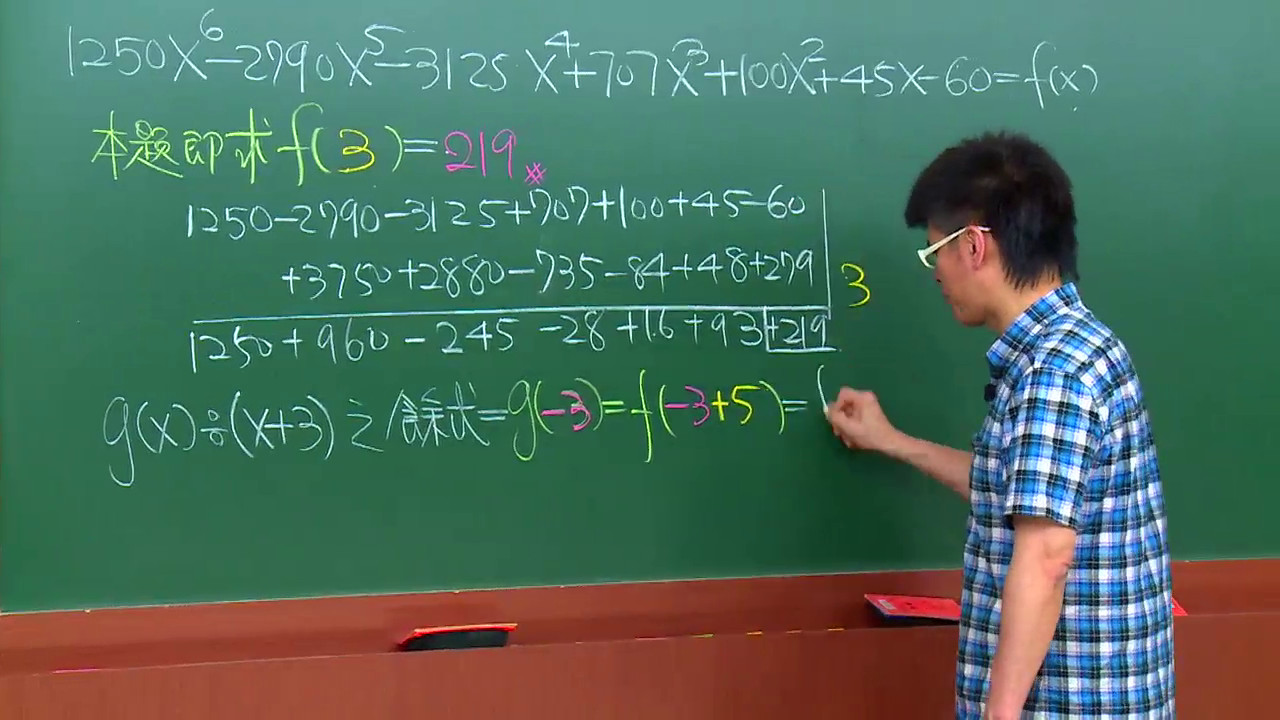 1250x⁶-2790x⁵-3125x⁴+707x³+100x²+45x-60=f(x)
本題即求f(3)=219※
1250-2790-3125+707+100+45-60
+3750+2880-735-84+48+279 3
1250+960-245-28+16+93+219
g(x)÷(x+3)之餘式=g(-3)=f(-3+5)=